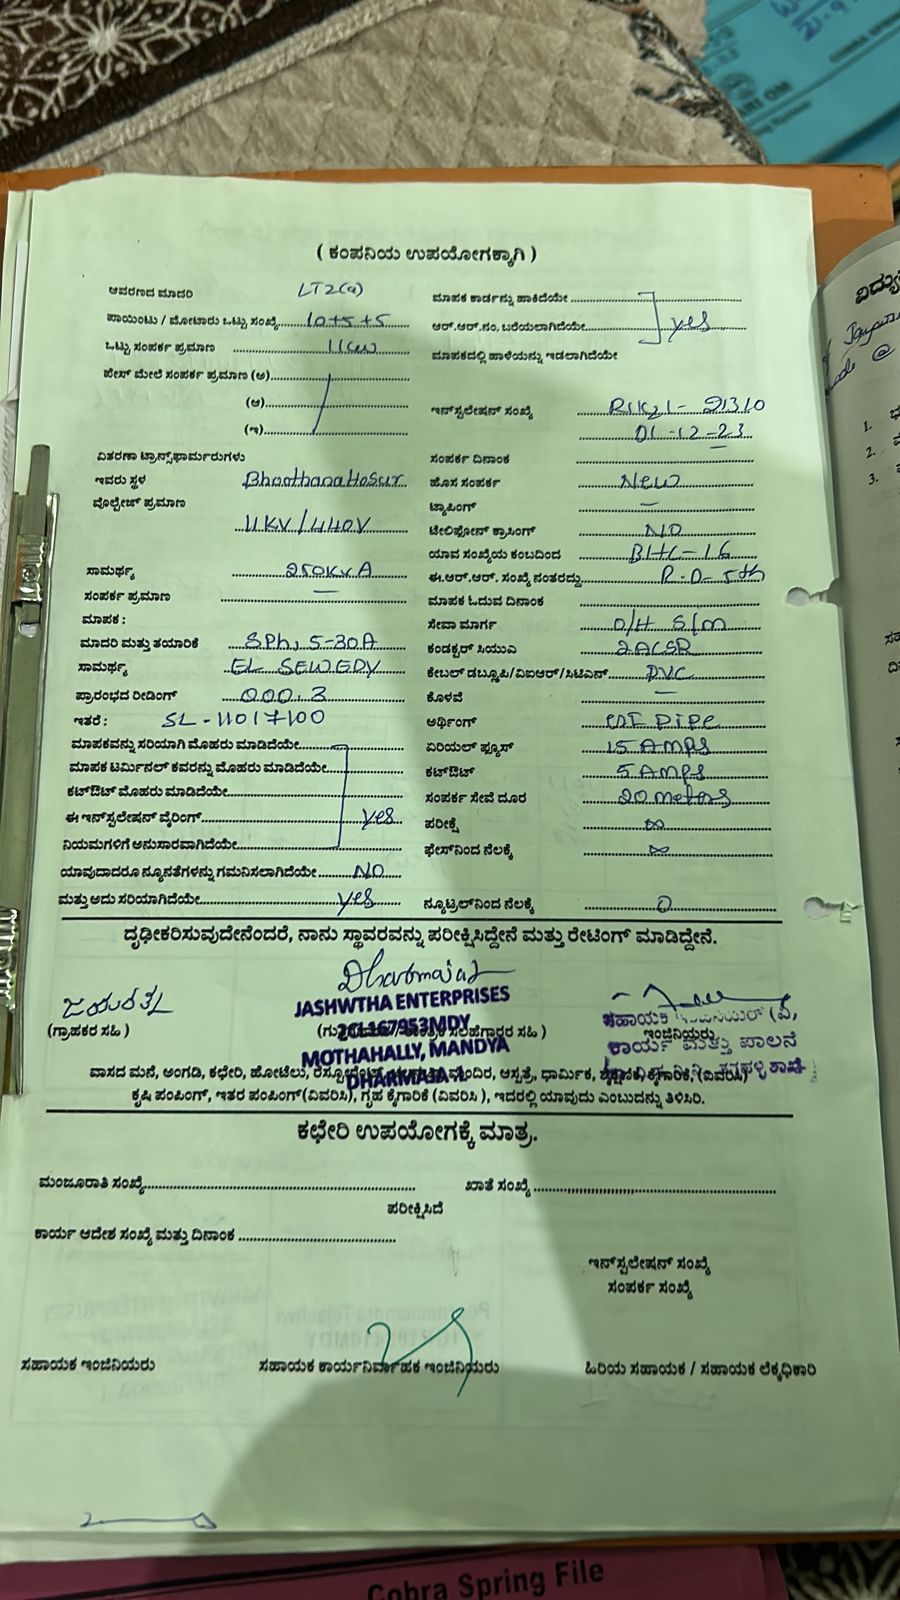 ( ಕಂಪನಿಯ ಉಪಯೋಗಕ್ಕಾಗಿ )
ಆವರಣದ ಮಾದರಿ LT2(a)
ಪಾಯಿಂಟು / ಮೋಟಾರು ಒಟ್ಟು ಸಂಖ್ಯೆ 10+5+5
ಒಟ್ಟು ಸಂಪರ್ಕ ಪ್ರಮಾಣ
ಫೇಸ್ ಮೇಲೆ ಸಂಪರ್ಕ ಪ್ರಮಾಣ (ಅ)
(ಆ)
(ಇ)
ವಿತರಣಾ ಟ್ರಾನ್ಸ್‌ಫಾರ್ಮರುಗಳು
ಇವರು ಸ್ಥಳ BhoothanaHosur
ವೊಲ್ಟೇಜ್ ಪ್ರಮಾಣ
11KV/440V
ಸಾಮರ್ಥ್ಯ 250KVA
ಸಂಪರ್ಕ ಪ್ರಮಾಣ —
ಮಾಪಕ :
ಮಾದರಿ ಮತ್ತು ತಯಾರಿಕೆ SPh, 5-30A
ಸಾಮರ್ಥ್ಯ EL SEWEDY
ಪ್ರಾರಂಭದ ರೀಡಿಂಗ್ 000.3
ಇತರೆ : SL-11017100
ಮಾಪಕವನ್ನು ಸರಿಯಾಗಿ ಮೊಹರು ಮಾಡಿದೆಯೇ
ಮಾಪಕ ಟರ್ಮಿನಲ್ ಕವರನ್ನು ಮೊಹರು ಮಾಡಿದೆಯೇ
ಕಟ್‌ಔಟ್ ಮೊಹರು ಮಾಡಿದೆಯೇ
ಈ ಇನ್‌ಸ್ಟಲೇಷನ್ ವೈರಿಂಗ್ yes
ನಿಯಮಗಳಿಗೆ ಅನುಸಾರವಾಗಿದೆಯೇ
ಯಾವುದಾದರೂ ನ್ಯೂನತೆಗಳನ್ನು ಗಮನಿಸಲಾಗಿದೆಯೇ NO
ಮತ್ತು ಅದು ಸರಿಯಾಗಿದೆಯೇ yes
ಮಾಪಕ ಕಾರ್ಡನ್ನು ಹಾಕಿದೆಯೇ
ಆರ್.ಆರ್.ನಂ. ಬರೆಯಲಾಗಿದೆಯೇ yes
ಮಾಪಕದಲ್ಲಿ ಹಾಳೆಯನ್ನು ಇಡಲಾಗಿದೆಯೇ
ಇನ್‌ಸ್ಟಲೇಷನ್ ಸಂಖ್ಯೆ
01-12-23
ಸಂಪರ್ಕ ದಿನಾಂಕ
ಹೊಸ ಸಂಪರ್ಕ New
ಟ್ಯಾಪಿಂಗ್ —
ಟೆಲಿಫೋನ್ ಕ್ರಾಸಿಂಗ್ NO
ಯಾವ ಸಂಖ್ಯೆಯ ಕಂಬದಿಂದ
ಈ.ಆರ್.ಆರ್. ಸಂಖ್ಯೆ ನಂತರದ್ದು
ಮಾಪಕ ಓದುವ ದಿನಾಂಕ
ಸೇವಾ ಮಾರ್ಗ O/H S/m
ಕಂಡಕ್ಟರ್ ಸಿಯುಎ 2ACSR
ಕೇಬಲ್ ಡಬ್ಲೂಪಿ/ವಿಐಆರ್/ಸಿಟಿಎಸ್ PVC
ಕೊಳವೆ —
ಅರ್ಥಿಂಗ್ GI pipe
ಏರಿಯಲ್ ಫ್ಯೂಸ್ 15 Amps
ಕಟ್‌ಔಟ್ 5 Amps
ಸಂಪರ್ಕ ಸೇವೆ ದೂರ 20 meters
ಪರೀಕ್ಷೆ ∞
ಫೇಸ್‌ನಿಂದ ನೆಲಕ್ಕೆ ∞
ನ್ಯೂಟ್ರಲ್‌ನಿಂದ ನೆಲಕ್ಕೆ 0
ದೃಢೀಕರಿಸುವುದೇನೆಂದರೆ, ನಾನು ಸ್ಥಾವರವನ್ನು ಪರೀಕ್ಷಿಸಿದ್ದೇನೆ ಮತ್ತು ರೇಟಿಂಗ್ ಮಾಡಿದ್ದೇನೆ.
JASHWTHA ENTERPRISES
(ಗ್ರಾಹಕರ ಸಹಿ )
ಸಹಿ )
ಇಂಜಿನಿಯರು
MOTHAHALLY, MANDYA
DHARMAJA L
ಸಹಾಯಕ
ಕಾರ್ಯ ಮತ್ತು ಪಾಲನೆ
ವಾಸದ ಮನೆ, ಅಂಗಡಿ, ಕಛೇರಿ, ಹೋಟೆಲು, ಮಂದಿರ, ಆಸ್ಪತ್ರೆ, ಧಾರ್ಮಿಕ, ಕೈಗಾರಿಕೆ, (ವಿವರಿಸಿ)
ಕೃಷಿ ಪಂಪಿಂಗ್, ಇತರ ಪಂಪಿಂಗ್(ವಿವರಿಸಿ), ಗೃಹ ಕೈಗಾರಿಕೆ (ವಿವರಿಸಿ ), ಇದರಲ್ಲಿ ಯಾವುದು ಎಂಬುದನ್ನು ತಿಳಿಸಿರಿ.
ಕಛೇರಿ ಉಪಯೋಗಕ್ಕೆ ಮಾತ್ರ.
ಮಂಜೂರಾತಿ ಸಂಖ್ಯೆ
ಖಾತೆ ಸಂಖ್ಯೆ
ಪರೀಕ್ಷಿಸಿದೆ
ಕಾರ್ಯ ಆದೇಶ ಸಂಖ್ಯೆ ಮತ್ತು ದಿನಾಂಕ
ಇನ್‌ಸ್ಟಲೇಷನ್ ಸಂಖ್ಯೆ
ಸಂಪರ್ಕ ಸಂಖ್ಯೆ
ಸಹಾಯಕ ಇಂಜಿನಿಯರು
ಸಹಾಯಕ ಕಾರ್ಯನಿರ್ವಾಹಕ ಇಂಜಿನಿಯರು
ಹಿರಿಯ ಸಹಾಯಕ / ಸಹಾಯಕ ಲೆಕ್ಕಧಿಕಾರಿ
Cobra Spring File